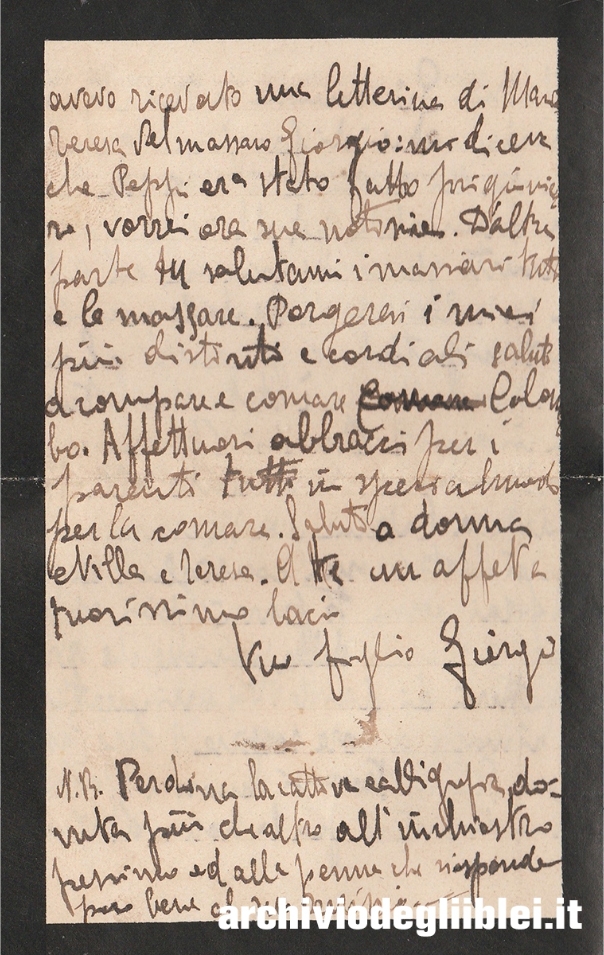 avevo ricevuto una letterina di Maria
Teresa del massaro Giorgio: mi diceva
che Peppi era stato fatto prigionie
ro, vorrei ora sue notizie. D'altra
parte tu salutami i massari tutti
e le massare. Porgerai i miei
più distinti e cordiali saluti
a compare e comare Colom
bo. Affettuosi abbracci per i
parenti tutti in special modo
per la comare. Saluti a donna
e Teresa. A te un affet
tuosissimo bacio
Tuo figlio Giorgio
N.B. Perdona la cattiva calligrafia, do-
vuta più che altro all'inchiostro
pessimo ed alla penna che risponde
poco bene al suo
archiviodegliiblei.it